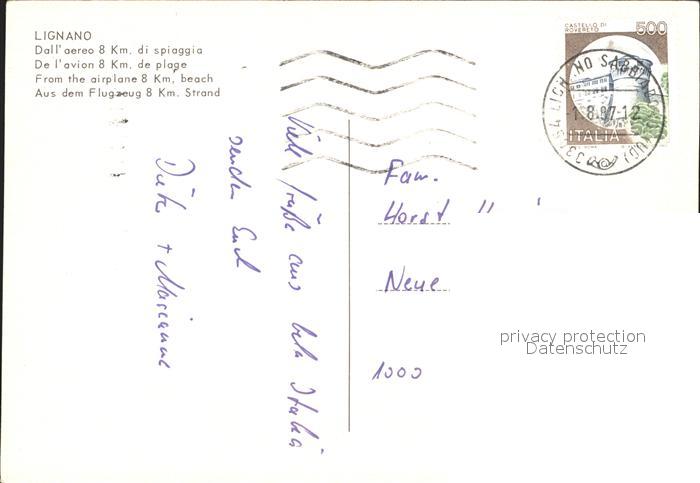 LIGNANO
Dall'aereo 8 Km. di spiaggia
De l'avion 8 Km. de plage
From the airplane 8 Km. beach
Aus dem Flugzeug 8 Km. Strand
CASTELLO DI
ROVERETO
500
ITALIA
33054 LIGNANO SABBIADORO (UD)
1.8.87-12
Viele Grüße aus
Italia
senden Euch
Dieter + Marianne
Fam.
Horst "
Neue
1000
privacy protection
Datenschutz